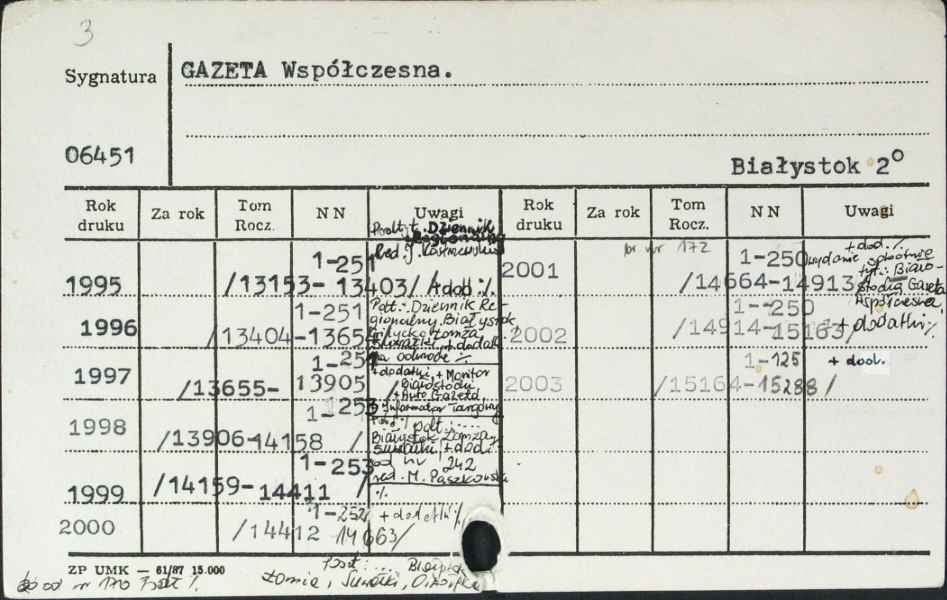 3
Sygnatura
GAZETA Współczesna.
06451
Białystok 2°
Rok druku Za rok Tom Rocz. NN Uwagi Rok druku Za rok Tom Rocz. NN Uwagi
1995 /13153- 13403/ 1-251 Podt.: Dziennik
red. J.
+dod ./.
1996 /13404-1365 1-251 Podt.: Dziennik Re-
gionalny. Białystok
+dodatk
1997 /13655- 13905 / 1-251
+dodatki, + Monitor
Białostocki
+ Auto Gazeta
Informator Targowy
1998 /13906-14158 / 1-253
podt.:....
Białystok Łomża
Suwałki, +dod.
od nr 242
red. M. Paszkowska
1999 /14159-14411 / 1-253
./.
2000 /14412 14663/ 1-252 +dodatki ./.
2001 nr 172 /14664-14913 1-250 +dod. ./.
tyt.: Biało-
stocka Gazeta
Współczesna,
2002 /14914-15163/ 1--250 +dodatki ./.
2003 /15164-15288/ 1-125 + dod.
ZP UMK — 61/87 15.000
od nr 170 Podt ./.
Podt:....
Łomża, Suwałki,